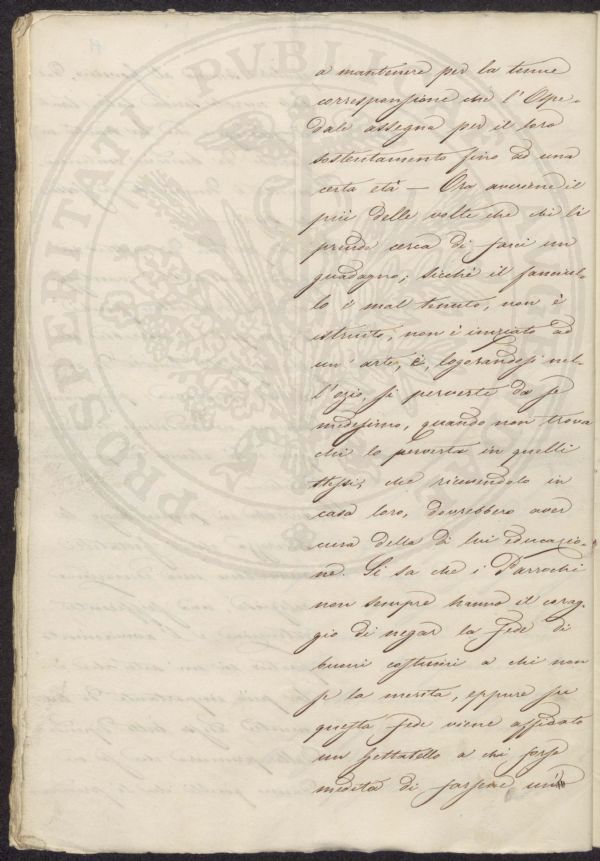 a mantenere per la tenue
corresponsione che l'Ospe-
dale assegna per il loro
sostentamento fino ad una
certa età — Ora avviene il
più delle volte che chi li
prende cerca di farci un
guadagno; sicchè il fanciul-
lo è mal tenuto, non è
istruito, non è iniziato ad
un'arte, e, logorandosi nel-
l'ozio, si perverte da se
medesimo, quando non trova
chi lo perverta in quelli
stessi, che ricevendolo in
casa loro, dovrebbero aver
cura della di lui educazio-
ne. Si sa che i Parrochi
non sempre hanno il corag-
gio di negar la fede di
buoni costumi a chi non
se la merita, eppure su
questa fede viene affidato
un gettatello a chi forse
medita di farsene un
PROSPERITATI PVBLICAE